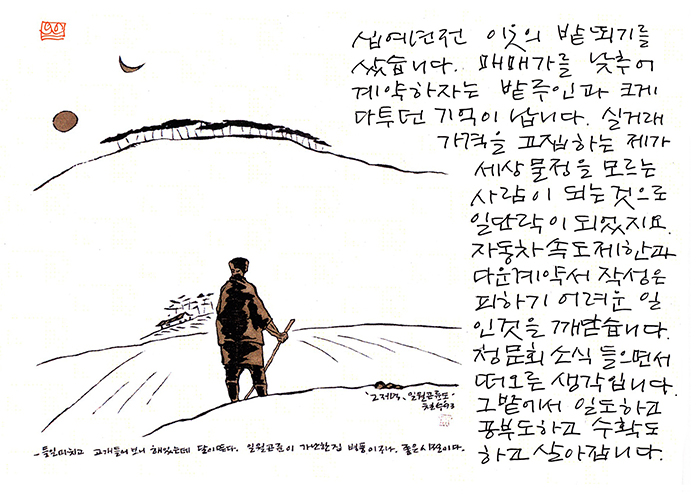 십여년전 이웃의 밭 뙤기를
샀습니다. 매매가를 낮추어
계약하자는 밭주인과 크게
다투던 기억이 납니다. 실거래
가격을 고집하는 제가
세상 물정을 모르는
사람이 되는것으로
일단락이 되었지요.
자동차 속도제한과
다운계약서 작성은
피하기 어려운 일
인것을 깨닫습니다.
청문회 소식 들으면서
떠오른 생각입니다.
그밭에서 일도하고
공부도하고 수확도
하고 살아갑니다.
'그저녁, 일월곤륜도'
- 들일마치고 고개들어보니 해있는데 달이떴다. 일월곤륜이 가난한집 병풍이구나. 좋은시절이다.